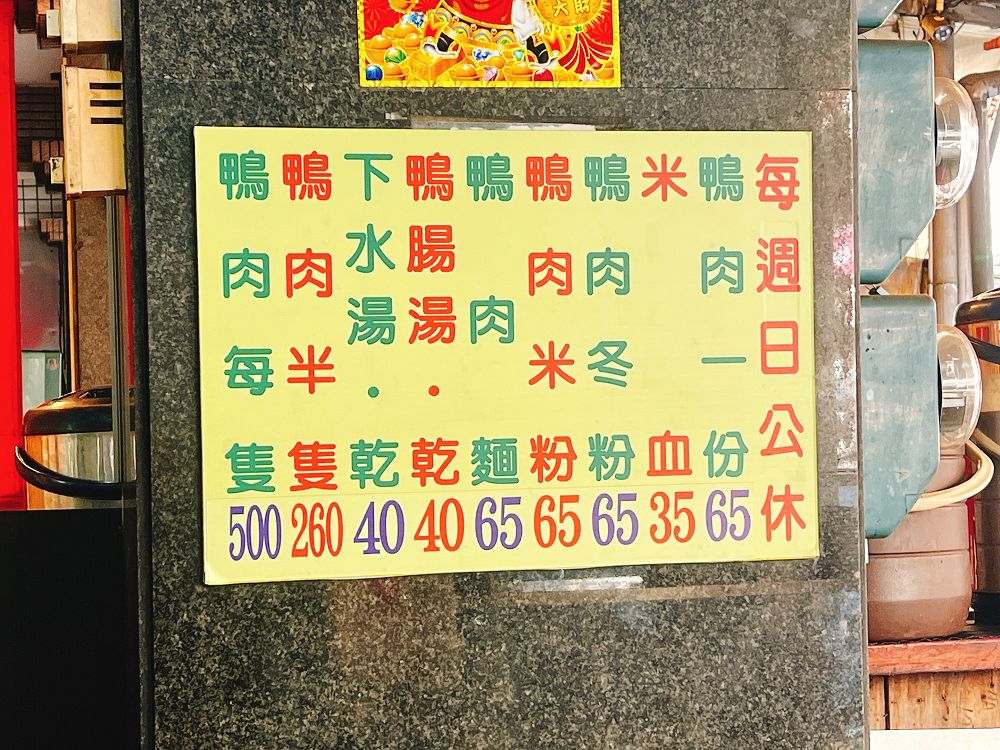 大財
每週日公休
鴨肉一份 65
米血 35
鴨肉冬粉 65
鴨肉米粉 65
鴨肉麵 65
鴨腸湯.乾 40
下水湯.乾 40
鴨肉半隻 260
鴨肉每隻 500